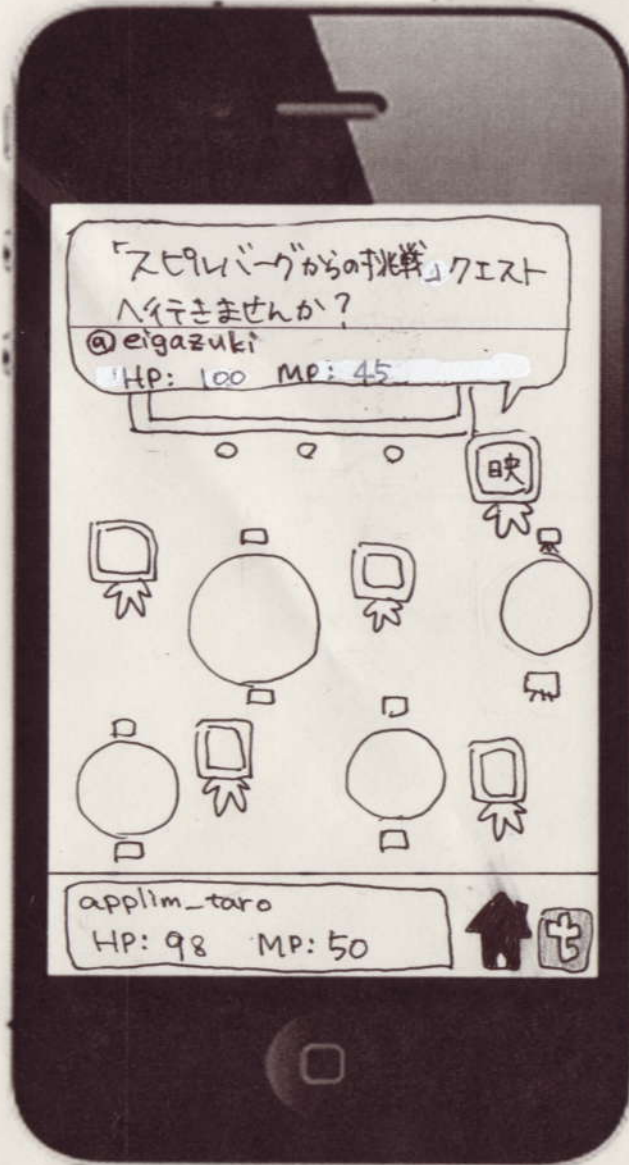 「スピルバーグからの挑戦」クエスト
へ行きませんか?
@eigazuki
HP: 100 MP: 45
映
applim_taro
HP: 98 MP: 50
t